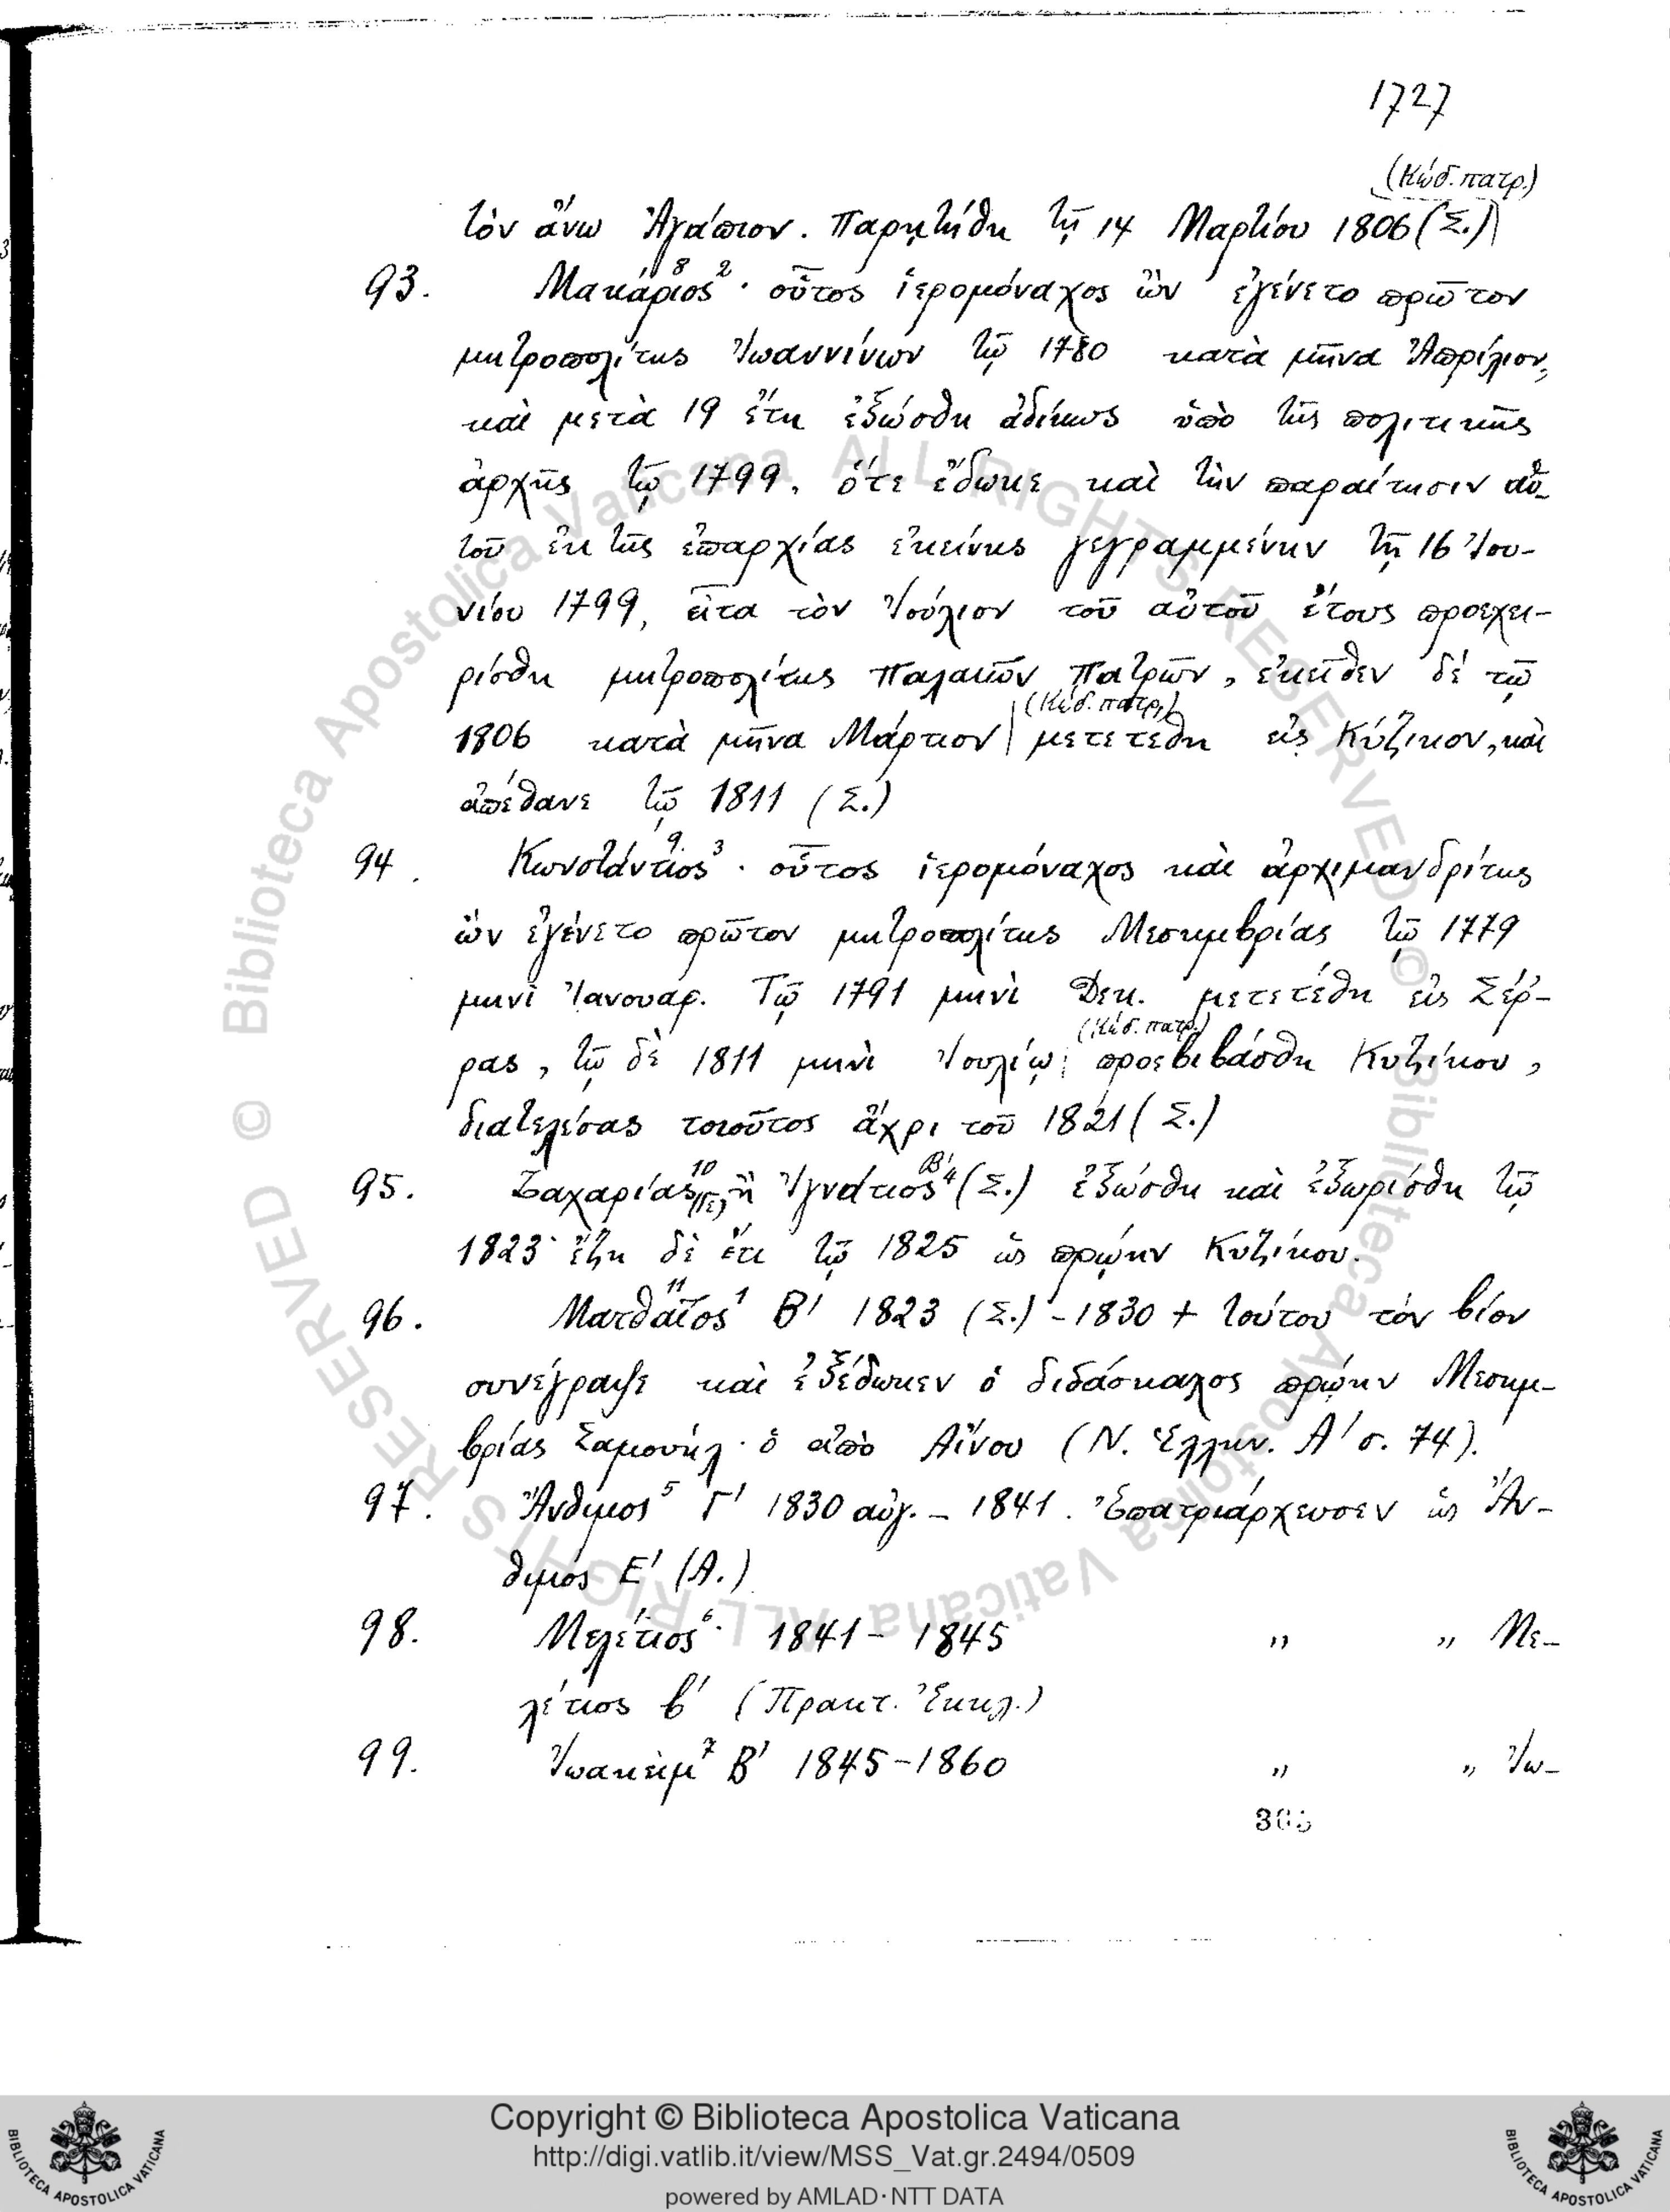 1727
(Κώδ. πατρ.)
τὸν ἄνω Ἀγάπιον. Παρῃτήθη τῇ 14 Μαρτίου 1806 (Σ.)
93. Μακάριος 8 2 · οὗτος ἱερομόναχος ὢν ἐγένετο πρῶτον
μητροπολίτης Ἰωαννίνων τῷ 1780 κατὰ μῆνα Ἀπρίλιον,
καὶ μετὰ 19 ἔτη ἐξώσθη ἀδίκως ὑπὸ τῆς πολιτικῆς
ἀρχῆς τῷ 1799, ὅτε ἔδωκε καὶ τὴν παραίτησιν αὐ-
τοῦ ἐκ τῆς ἐπαρχίας ἐκείνης γεγραμμένην τῇ 16 Ἰου-
νίου 1799, εἶτα τὸν Ἰούλιον τοῦ αὐτοῦ ἔτους προεχει-
ρίσθη μητροπολίτης Παλαιῶν Πατρῶν, ἐκεῖθεν δὲ τῷ
(Κώδ. πατρ.)
1806 κατὰ μῆνα Μάρτιον μετετέθη εἰς Κύζικον, καὶ
ἀπέθανε τῷ 1811 (Σ.)
94. Κωνστάντιος 9 3 · οὗτος ἱερομόναχος καὶ ἀρχιμανδρίτης
ὢν ἐγένετο πρῶτον μητροπολίτης Μεσημβρίας τῷ 1779
μηνὶ Ἰανουαρ. Τῷ 1791 μηνὶ Δεκ. μετετέθη εἰς Σέρ-
(Κώδ. πατρ.)
ρας, τῷ δὲ 1811 μηνὶ Ἰουλίῳ προεβιβάσθη Κυζίκου,
διατελέσας τοιοῦτος ἄχρι τοῦ 1821 (Σ.)
95. Ζαχαρίας 10 (Γε) ἢ Ἰγνάτιος Β' 4 (Σ.) ἐξώσθη καὶ ἐξωρίσθη τῷ
1823· ἔζη δὲ ἔτι τῷ 1825 ὡς πρῴην Κυζίκου.
96. Ματθαῖος 11 1 Β' 1823 (Σ.) - 1830 + τούτου τὸν βίον
συνέγραψε καὶ ἐξέδωκεν ὁ διδάσκαλος πρῴην Μεσημ-
βρίας Σαμουήλ · ὁ ἀπὸ Αἴνου (Ν. Ἑλλην. Α' σ. 74).
97. Ἄνθιμος 5 Γ' 1830 αὐγ. - 1841. Ἐπατριάρχευσεν ὡς Ἄν-
θιμος Ε' (Α.)
98. Μελέτιος 6 · 1841 - 1845 " " Με-
λέτιος β' (Πρακτ. Ἐκκλ.)
99. Ἰωακεὶμ 7 Β' 1845-1860 " " Ἰω-
Copyright © Biblioteca Apostolica Vaticana
http://digi.vatlib.it/view/MSS_Vat.gr.2494/0509
powered by AMLAD·NTT DATA
BIBLIOTECA APOSTOLICA VATICANA
BIBLIOTECA APOSTOLICA VATICANA
© Biblioteca Apostolica Vaticana ALL RIGHTS RESERVED © Biblioteca Apostolica Vaticana ALL RIGHTS RESERVED